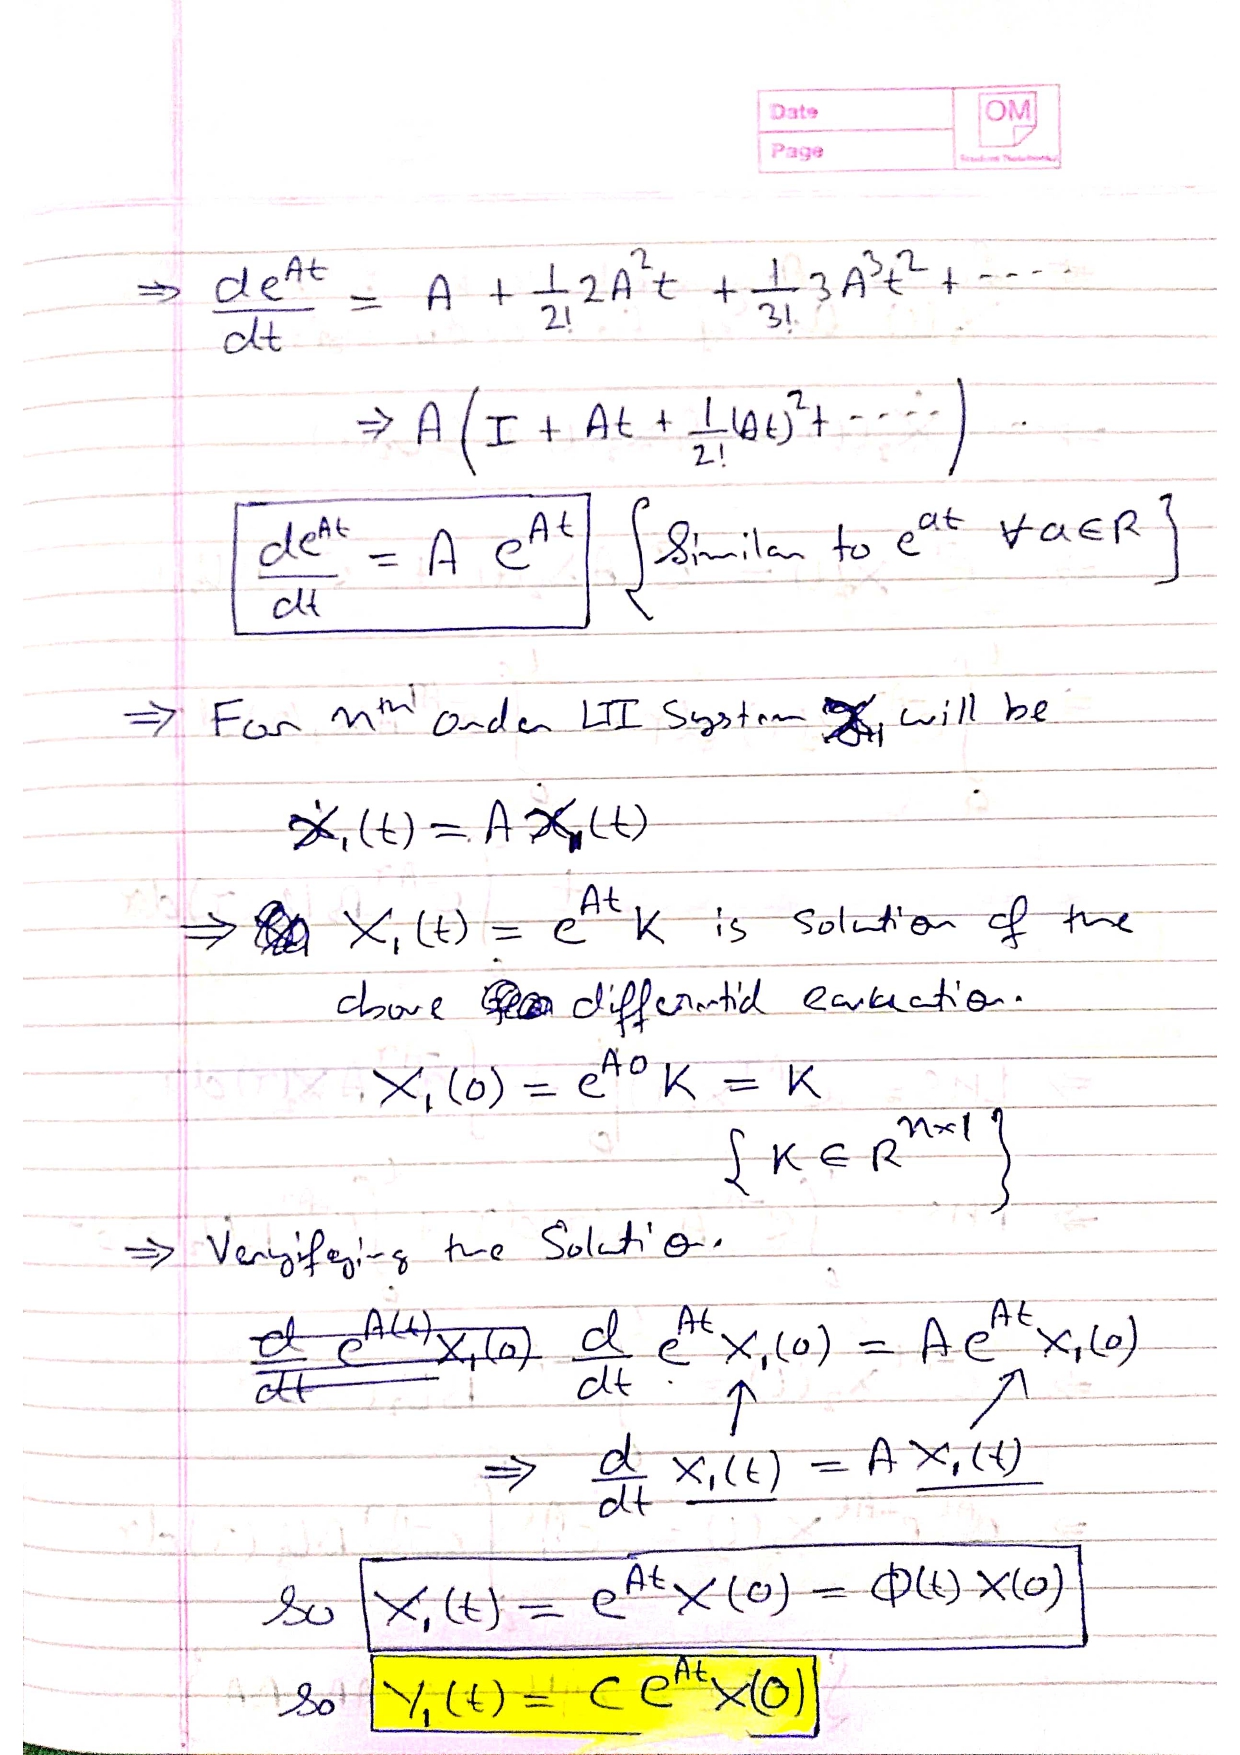 Date
Page
OM
⇒ de^{At}/dt = A + 1/2! 2A²t + 1/3! 3A³t² + ----
⇒ A (I + At + 1/2! (At)² + -----)
de^{At}/dt = A e^{At} {Similar to e^{at} ∀ a∈R}
⇒ For nth order LTI System X₁ will be
Ẋ₁(t) = A X₁(t)
⇒ X₁(t) = e^{At} K is solution of the
above differential
X₁(0) = e^{A0} K = K
{K ∈ R^{n×1}}
⇒ the Solution.
d/dt e^{A(t)} X₁(0) d/dt e^{At} X₁(0) = A e^{At} X₁(0)
↑ ↗
⇒ d/dt X₁(t) = A X₁(t)
So X₁(t) = e^{At} X(0) = Φ(t) X(0)
So Y₁(t) = C e^{At} X(0)